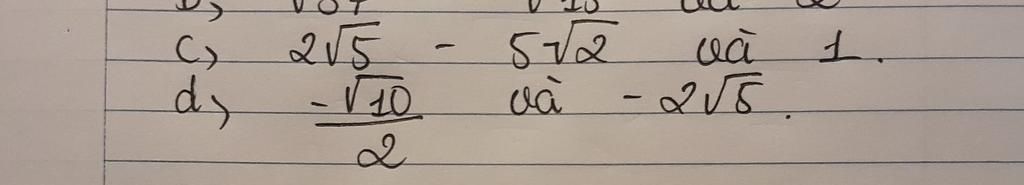 c, 2√5 - 5√2 và 1.
d, -√10/2 và - 2√5.